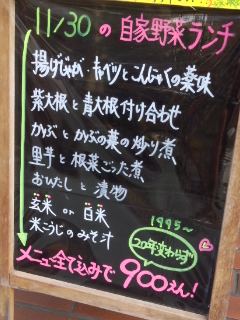 11/30 の 自家野菜ランチ
揚げじゃが・キャベツとこんにゃくの薬味
紫大根と青大根付け合わせ
かぶとかぶの菜の炒り煮
里芋と根菜ごった煮
おひたしと漬物
玄米 or 白米
米こうじのみそ汁
1995～
20年変わらず
メニュー全て込みで900えん!